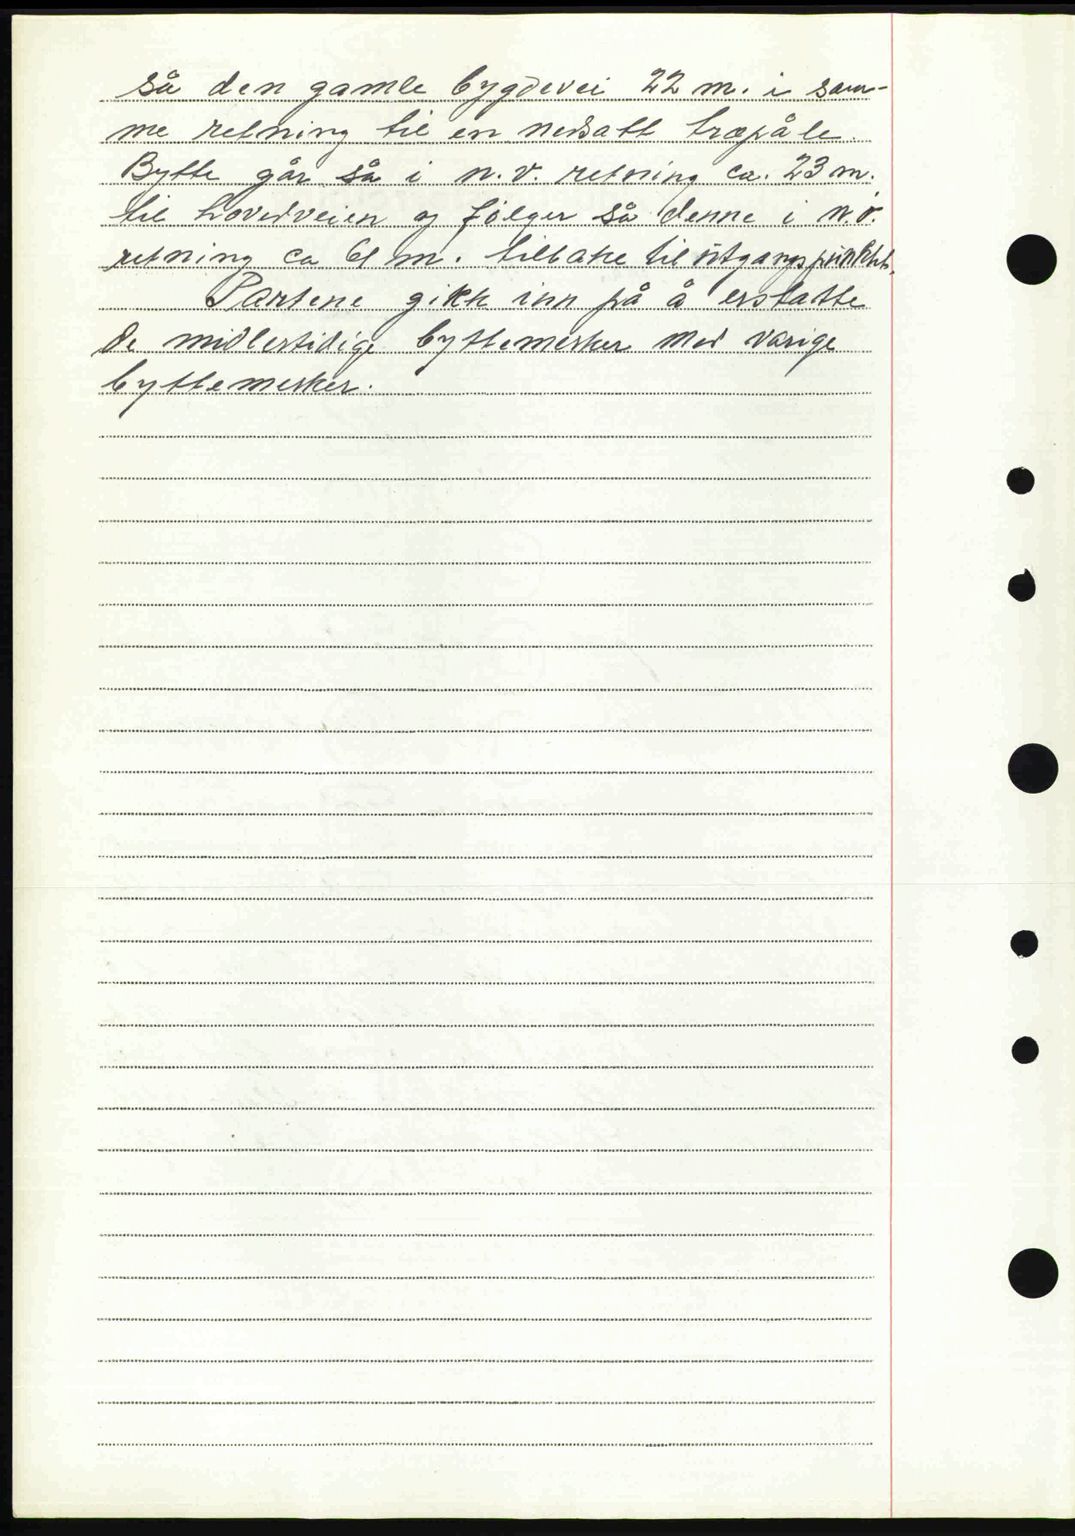 så den gamle bygdevei 22 m. i sam-
me retning til en nedsatt træpåle.
Bytte går så i n.v. retning ca. 23 m.
til hovedveien og følger så denne i n.ö.
retning ca 61 m. tilbake til utgangspunktet.
Partene gikk inn på å erstatte
de midlertidige byttemerker med varige
byttemerker.